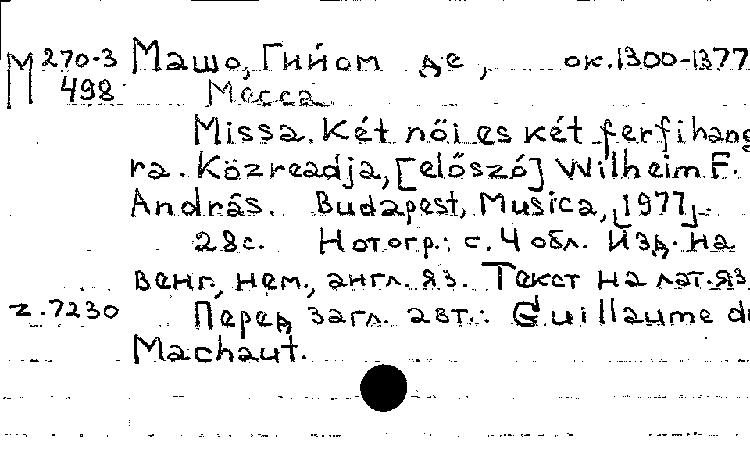 М 270-3 Машо, Гийом де, ок.1300-1377
498 Месса
Missa. Két női es két ferfihang
ra. Közreadja, [előszó] Wilheim F.
András. Budapest, Musica, [1977].
28с. Нотогр.: с. 4 обл. Изд. на
венг., нем., англ. яз. Текст на лат. яз
z.7230 Перед загл. авт.: Guillaume du
Machaut.